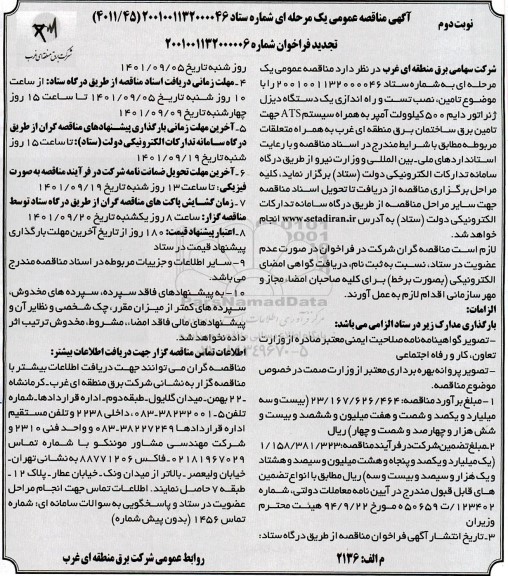 نوبت دوم
آگهی مناقصه عمومی یک مرحله ای شماره ستاد ۲۰۰۱۰۰۱۱۳۲۰۰۰۰۴۶ (۴۰۱۱/۴۵)
تجدید فراخوان شماره ۲۰۰۱۰۰۱۱۳۲۰۰۰۰۰۶
شرکت برق منطقه ای غرب
شرکت سهامی برق منطقه ای غرب در نظر دارد مناقصه عمومی یک
مرحله ای به شماره ستاد ۲۰۰۱۰۰۱۱۳۲۰۰۰۰۴۶ را با
موضوع تامین، نصب تست و راه اندازی یک دستگاه دیزل
ژنراتور دایم ۵۰۰ کیلوولت آمپر به همراه سیستم ATS جهت
تامین برق ساختمان برق منطقه ای غرب به همراه متعلقات
مربوطه مطابق با شرایط مندرج در اسناد مناقصه و با رعایت
استانداردهای ملی-بین المللی و وزارت نیرو از طریق درگاه
سامانه تدارکات الکترونیکی دولت (ستاد) برگزار نماید. کلیه
مراحل برگزاری مناقصه از دریافت تا تحویل اسناد مناقصه
جهت سایر مراحل مناقصه از طریق درگاه سامانه تدارکات
الکترونیکی دولت (ستاد) به آدرس www.setadiran.ir انجام
خواهد شد.
لازم است مناقصه گران شرکت در فراخوان در صورت عدم
عضویت در ستاد، نسبت به ثبت نام، دریافت گواهی امضای
الکترونیکی (بصورت برخط) برای کلیه صاحبان امضاء مجاز و
مهر سازمانی اقدام لازم به عمل آورند.
الزامات:
بارگذاری مدارک زیر در ستاد الزامی می باشد:
-تصویر گواهینامه نامه صلاحیت ایمنی معتبر صادره از وزارت
تعاون، کار و رفاه اجتماعی
-تصویر پروانه بهره برداری معتبر از وزارت صمت در خصوص
موضوع مناقصه.
۱-مبلغ برآورد مناقصه: ۲۳/۱۶۷/۶۲۶/۴۶۴ (بیست و سه
میلیارد و یکصد و شصت و هفت میلیون و ششصد و بیست و
شش هزار و چهارصد و شصت و چهار) ریال
۲-مبلغ تضمین شرکت در فرآیند مناقصه: ۱/۱۵۸/۳۸۱/۳۲۳
(یک میلیارد و یکصد و پنجاه و هشت میلیون و سیصد و هشتاد
و یک هزار و سیصد و بیست و سه) ریال مطابق با انواع تضمین
های قابل قبول مندرج در آیین نامه معاملات دولتی، شماره
۱۲۳۴۰۲/ت ۵۰۶۵۹ ه مورخ ۹۴/۹/۲۲ هیئت محترم
وزیران
۳-تاریخ انتشار آگهی فراخوان مناقصه از طریق درگاه ستاد:
روز شنبه تاریخ ۱۴۰۱/۰۹/۰۵
۴-مهلت زمانی دریافت اسناد مناقصه از طریق درگاه ستاد: از ساعت
۱۰ روز شنبه تاریخ ۱۴۰۱/۰۹/۰۵ تا ساعت ۱۵ روز
چهارشنبه تاریخ ۱۴۰۱/۰۹/۰۹
۵-آخرین مهلت زمانی بارگذاری پیشنهادهای مناقصه گران از طریق
درگاه سامانه تدارکات الکترونیکی دولت (ستاد): تا ساعت ۱۵ روز
شنبه تاریخ ۱۴۰۱/۰۹/۱۹
۶-آخرین مهلت تحویل ضمانت نامه شرکت در فرآیند مناقصه به صورت
فیزیکی: تا ساعت ۱۳ روز شنبه تاریخ ۱۴۰۱/۰۹/۱۹
۷-زمان گشایش پاکت های مناقصه گران از طریق درگاه ستاد توسط
مناقصه گزار: ساعت ۸ روز یکشنبه تاریخ ۱۴۰۱/۰۹/۲۰
۸-اعتبار پیشنهاد قیمت: ۱۸۰ روز از تاریخ آخرین مهلت بارگذاری
پیشنهاد قیمت در ستاد
۹-سایر اطلاعات و جزییات مربوطه در اسناد مناقصه مندرج
می باشد.
۱۰-به پیشنهادهای فاقد سپرده، سپرده های مخدوش،
سپرده های کمتر از میزان مقرر، چک شخصی و نظایر آن و
پیشنهادهای مالی فاقد امضاء، مشروط، مخدوش ترتیب اثر
داده نخواهد شد.
اطلاعات تماس مناقصه گزار جهت دریافت اطلاعات بیشتر:
مناقصه گران می توانند جهت دریافت اطلاعات بیشتر با
مناقصه گزار به نشانی شرکت برق منطقه ای غرب-کرمانشاه
-۲۲ بهمن-میدان گلایول-طبقه دوم-اداره قراردادها-شماره
تلفن ۵-۰۸۳-۳۸۲۳۲۰۰۱ داخلی ۲۲۳۸ و تلفن مستقیم
اداره قراردادها ۰۸۳-۳۸۲۲۷۲۴۹ و واحد فنی ۲۳۱۰ و
شرکت مهندسی مشاور موننکو با شماره تماس
۰۲۱۸۱۹۶۷۰۲۹-فاکس ۸۸۷۷۱۲۰۶ به نشانی تهران-
خیابان ولیعصر-بالاتر از میدان ونک-خیابان عطار-پلاک ۱۲-
طبقه ۷ حاصل نمایند. اطلاعات تماس جهت انجام مراحل
عضویت در ستاد و پاسخگویی به سوالات سامانه ای: شماره
تماس ۱۴۵۶ (بدون پیش شماره)
م الف: ۲۱۳۶
روابط عمومی شرکت برق منطقه ای غرب